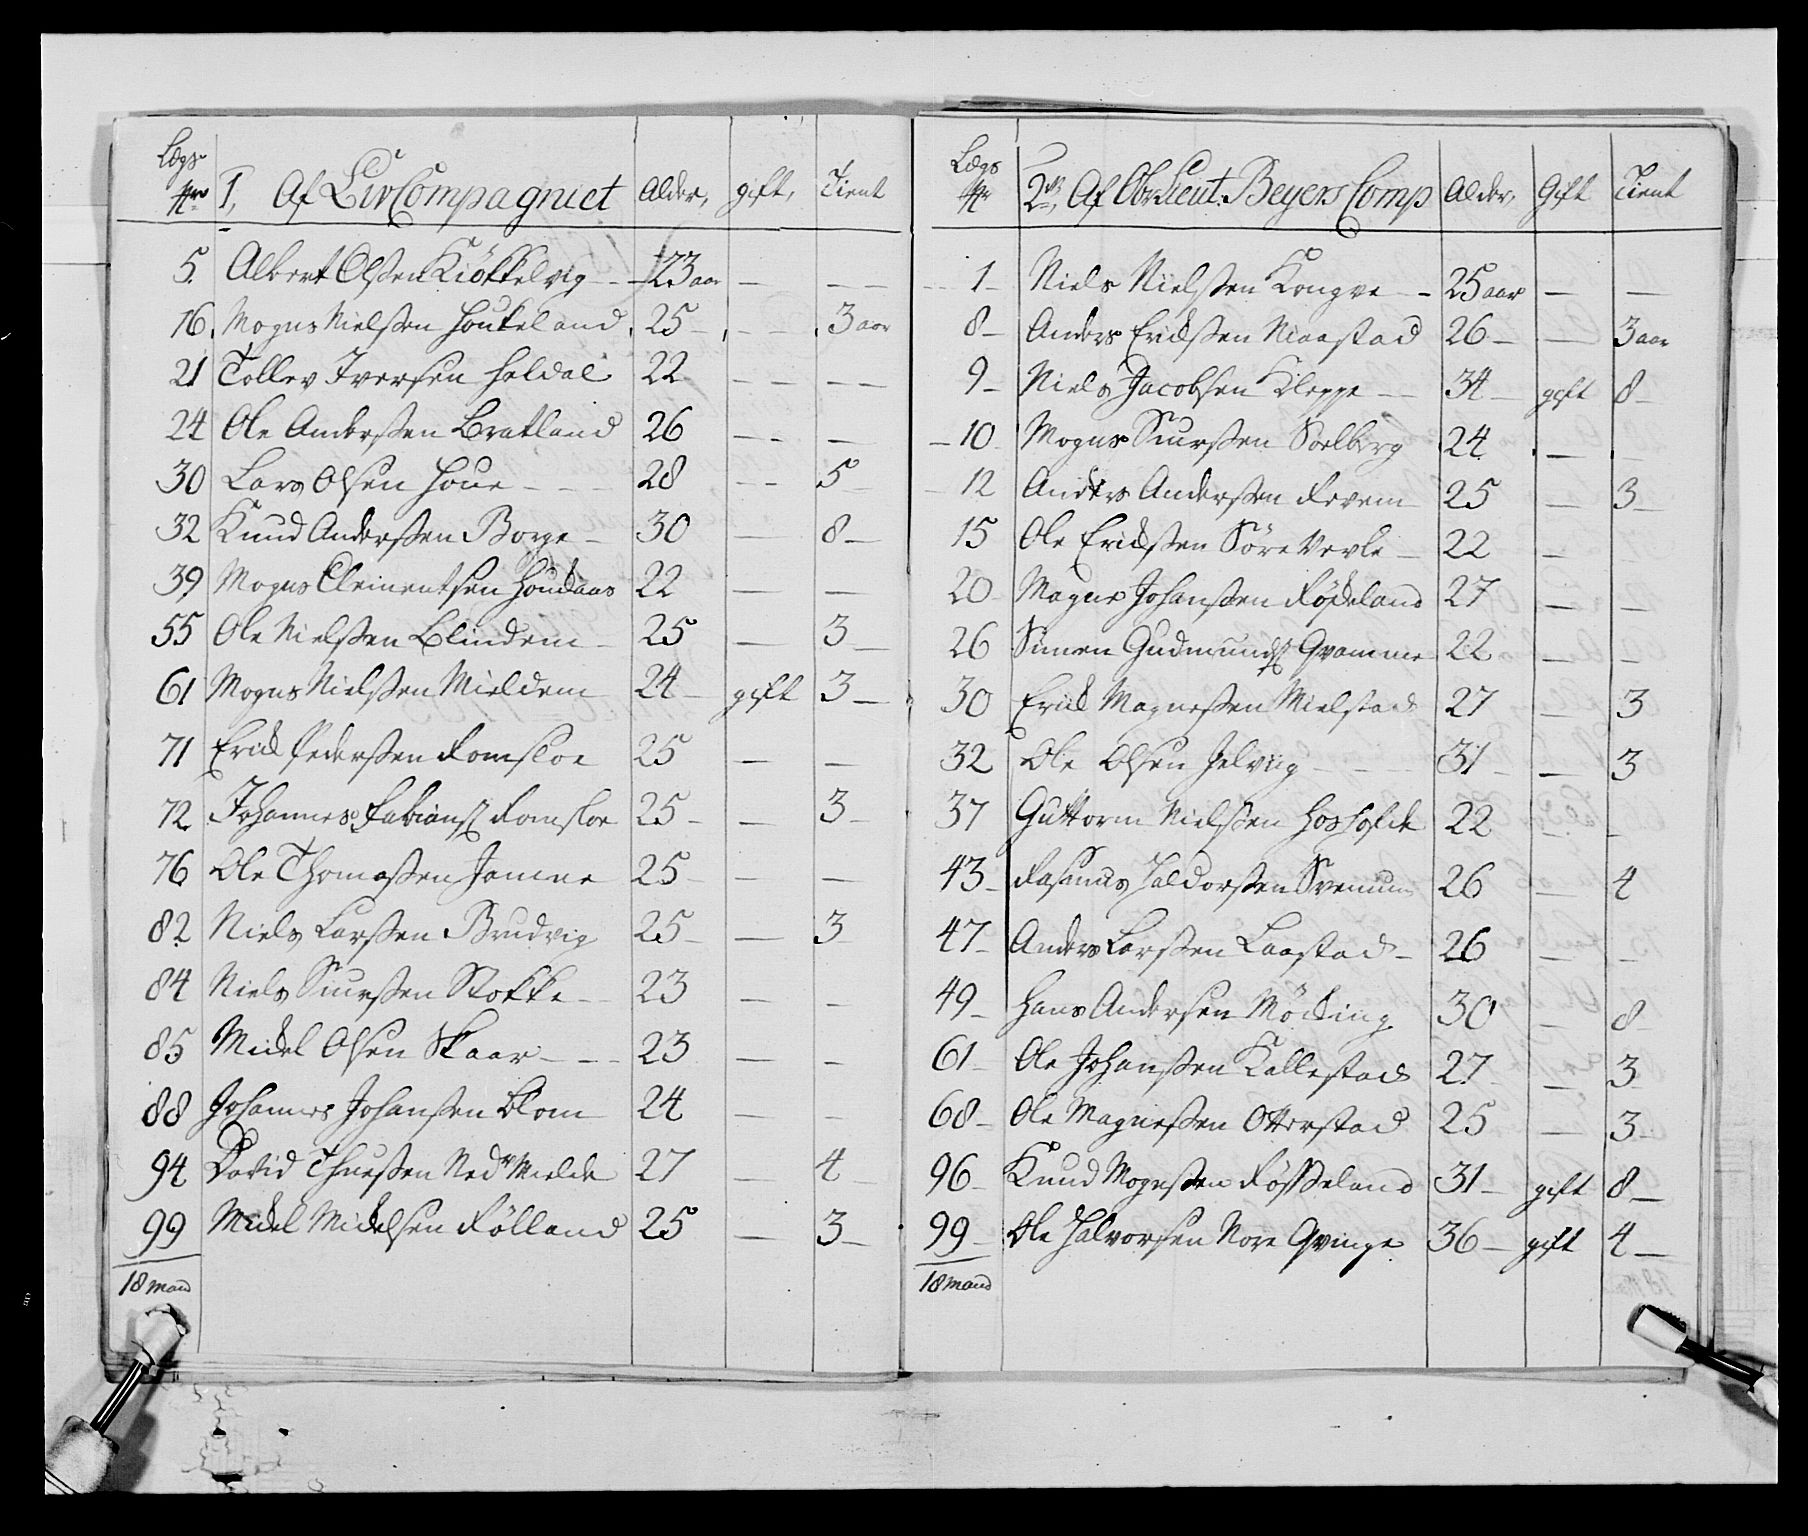 Lægs
Nro 1, Af Liv Compagniet Alder, gift, Tient
5. Albert Olsen Kiökkelvig - - 23 aar — — —
16. Mogns Nielsen Houkeland. 25 — - — 3 aar
21 Tollev Iversen Heldal 22 — — — —
24 Ole Andersen Bratland 26 — - —
30 Lars Olsen Houe - - - 28 - - 5
32 Knud Andersen Borge - 30 — 8 —
39 Mogns Clementsen Houdaas 22 — —
55 Ole Nielsen Blindem - 25 — 3 —
61 Mogns Nielsen Mieldem 24 - gift 3 —
71 Erick Pedersen Romsloe 25 — —
72 Johannes Fabians Romsloe 25 - — 3 -
76 Ole Thomassen Jamne 25 - — —
82 Niels Larsen Brudvig 25 - — 3
84 Niels Siursen Stokke - - 23 — -
85 Mickel Olsen Skaar - - - 23 — -
88 Johannes Johansen Blom 24 — -
94 David Thuesen Nedr Mielde 27 — 4
99 Mickel Mickelsen Rölland 25 — 3 —
18 mand
Lægs
Nr 2de, Af Obr Lieut. Beyers Comp Alder, Gift Tient
1 - Niels Nielsen Kongve - - 25 aar — —
8 - Anders Ericksen Niaastad 26 - — 3 aar
9 - Niels Jacobsen Kleppe - - 34 - gift 8 -
- 10 Mogns Siursen Soelberg 24 — -
- 12 Anders Andersen Revem 25 — 3 -
15 Ole Ericksen Söre Vevle - 22 -
20 Magne Johansen Rödeland 27 — -
26 Simen Gudmunds Qvamme 22 — -
30 Erick Magnesen Mielstad 27 — 3
32 Ole Olsen Jelviig - - - 31 - — 3
37 Guttorm Nielsen 22 - -
43 - Rasmus Haldorsen 26 — 4
47 - Anders Larsen Laastad - 26 — -
49 - Hans Andersen Möcking 30 - 8
61 - Ole Johansen Kallestad 27 — 3
68 - Ole Magnesen Otterstad 25 — 3 -
96 - Knud Mognsen Rösseland 31 - gift 8 —
99 - Ole Halvorsen Nore Qvinge 36 — gift 4 —
18 mand